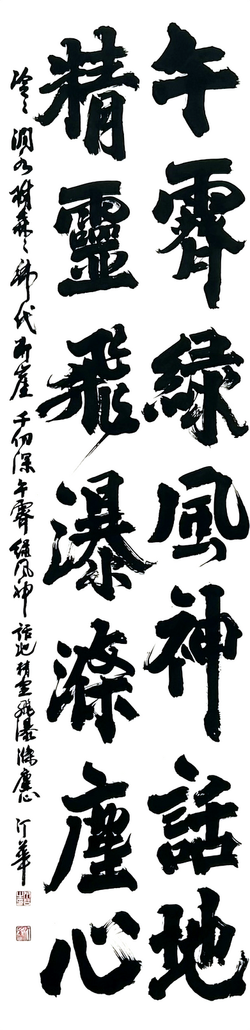 午霽緑風神話地
精靈飛瀑滌塵心
冷々澗水樹森々 斷崖千仞深 午霽緑風神話地 精靈飛瀑滌塵心 汀華